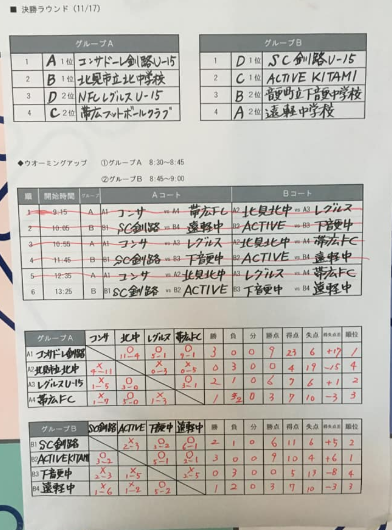 ■ 決勝ラウンド（11/17）
グループA
1 A 1位 コンサドーレ釧路U-15
2 B 1位 北見市立北中学校
3 D 2位 NFCレグルスU-15
4 C 2位 帯広フットボールクラブ
グループB
1 D 1位 SC釧路U-15
2 C 1位 ACTIVE KITAMI
3 B 2位 音更町立下音更中学校
4 A 2位 遠軽中学校
◆ウオーミングアップ ①グループA 8:30～8:45
②グループB 8:45～9:00
順 開始時間 グループ Aコート Bコート
1 9:15 A A1 コンサ vs A4 帯広FC A2 北見北中 vs A3 レグルス
2 10:05 B B1 SC釧路 vs B4 遠軽中 B2 ACTIVE vs B3 下音更中
3 10:55 A A1 コンサ vs A3 レグルス A2 北見北中 vs A4 帯広FC
4 11:45 B B1 SC釧路 vs B3 下音更中 B2 ACTIVE vs B4 遠軽中
5 12:35 A A1 コンサ vs A2 北見北中 A3 レグルス vs A4 帯広FC
6 13:25 B B1 SC釧路 vs B2 ACTIVE B3 下音更中 vs B4 遠軽中
グループA コンサ 北中 レグルス 帯広FC 勝 負 分 勝点 得点 失点 得失点差 順位
A1 コンサドーレ釧路 ○ 11-4 ○ 5-1 ○ 7-1 3 0 0 9 23 6 +17 1
A2 北見北中 × 4-11 × 0-3 × 0-5 0 3 0 0 4 19 -15 4
A3 レグルスU-15 × 1-5 ○ 3-0 2 1 0 6 7 6 +1 2
A4 帯広FC × 1-7 ○ 5-0 1 2 0 3 7 10 -3 3
グループB SC釧路 ACTIVE 下音更中 遠軽中 勝 負 分 勝点 得点 失点 得失点差 順位
B1 SC釧路 × 2-3 ○ 6-1 2 1 0 6 11 6 +5 2
B2 ACTIVE KITAMI ○ 3-2 ○ 2-1 3 0 0 9 10 4 +6 1
B3 下音更中 × 2-5 0 3 0 0 5 13 -8 4
B4 遠軽中 × 1-6 × 1-2 ○ 5-2 1 2 0 3 7 10 -3 3